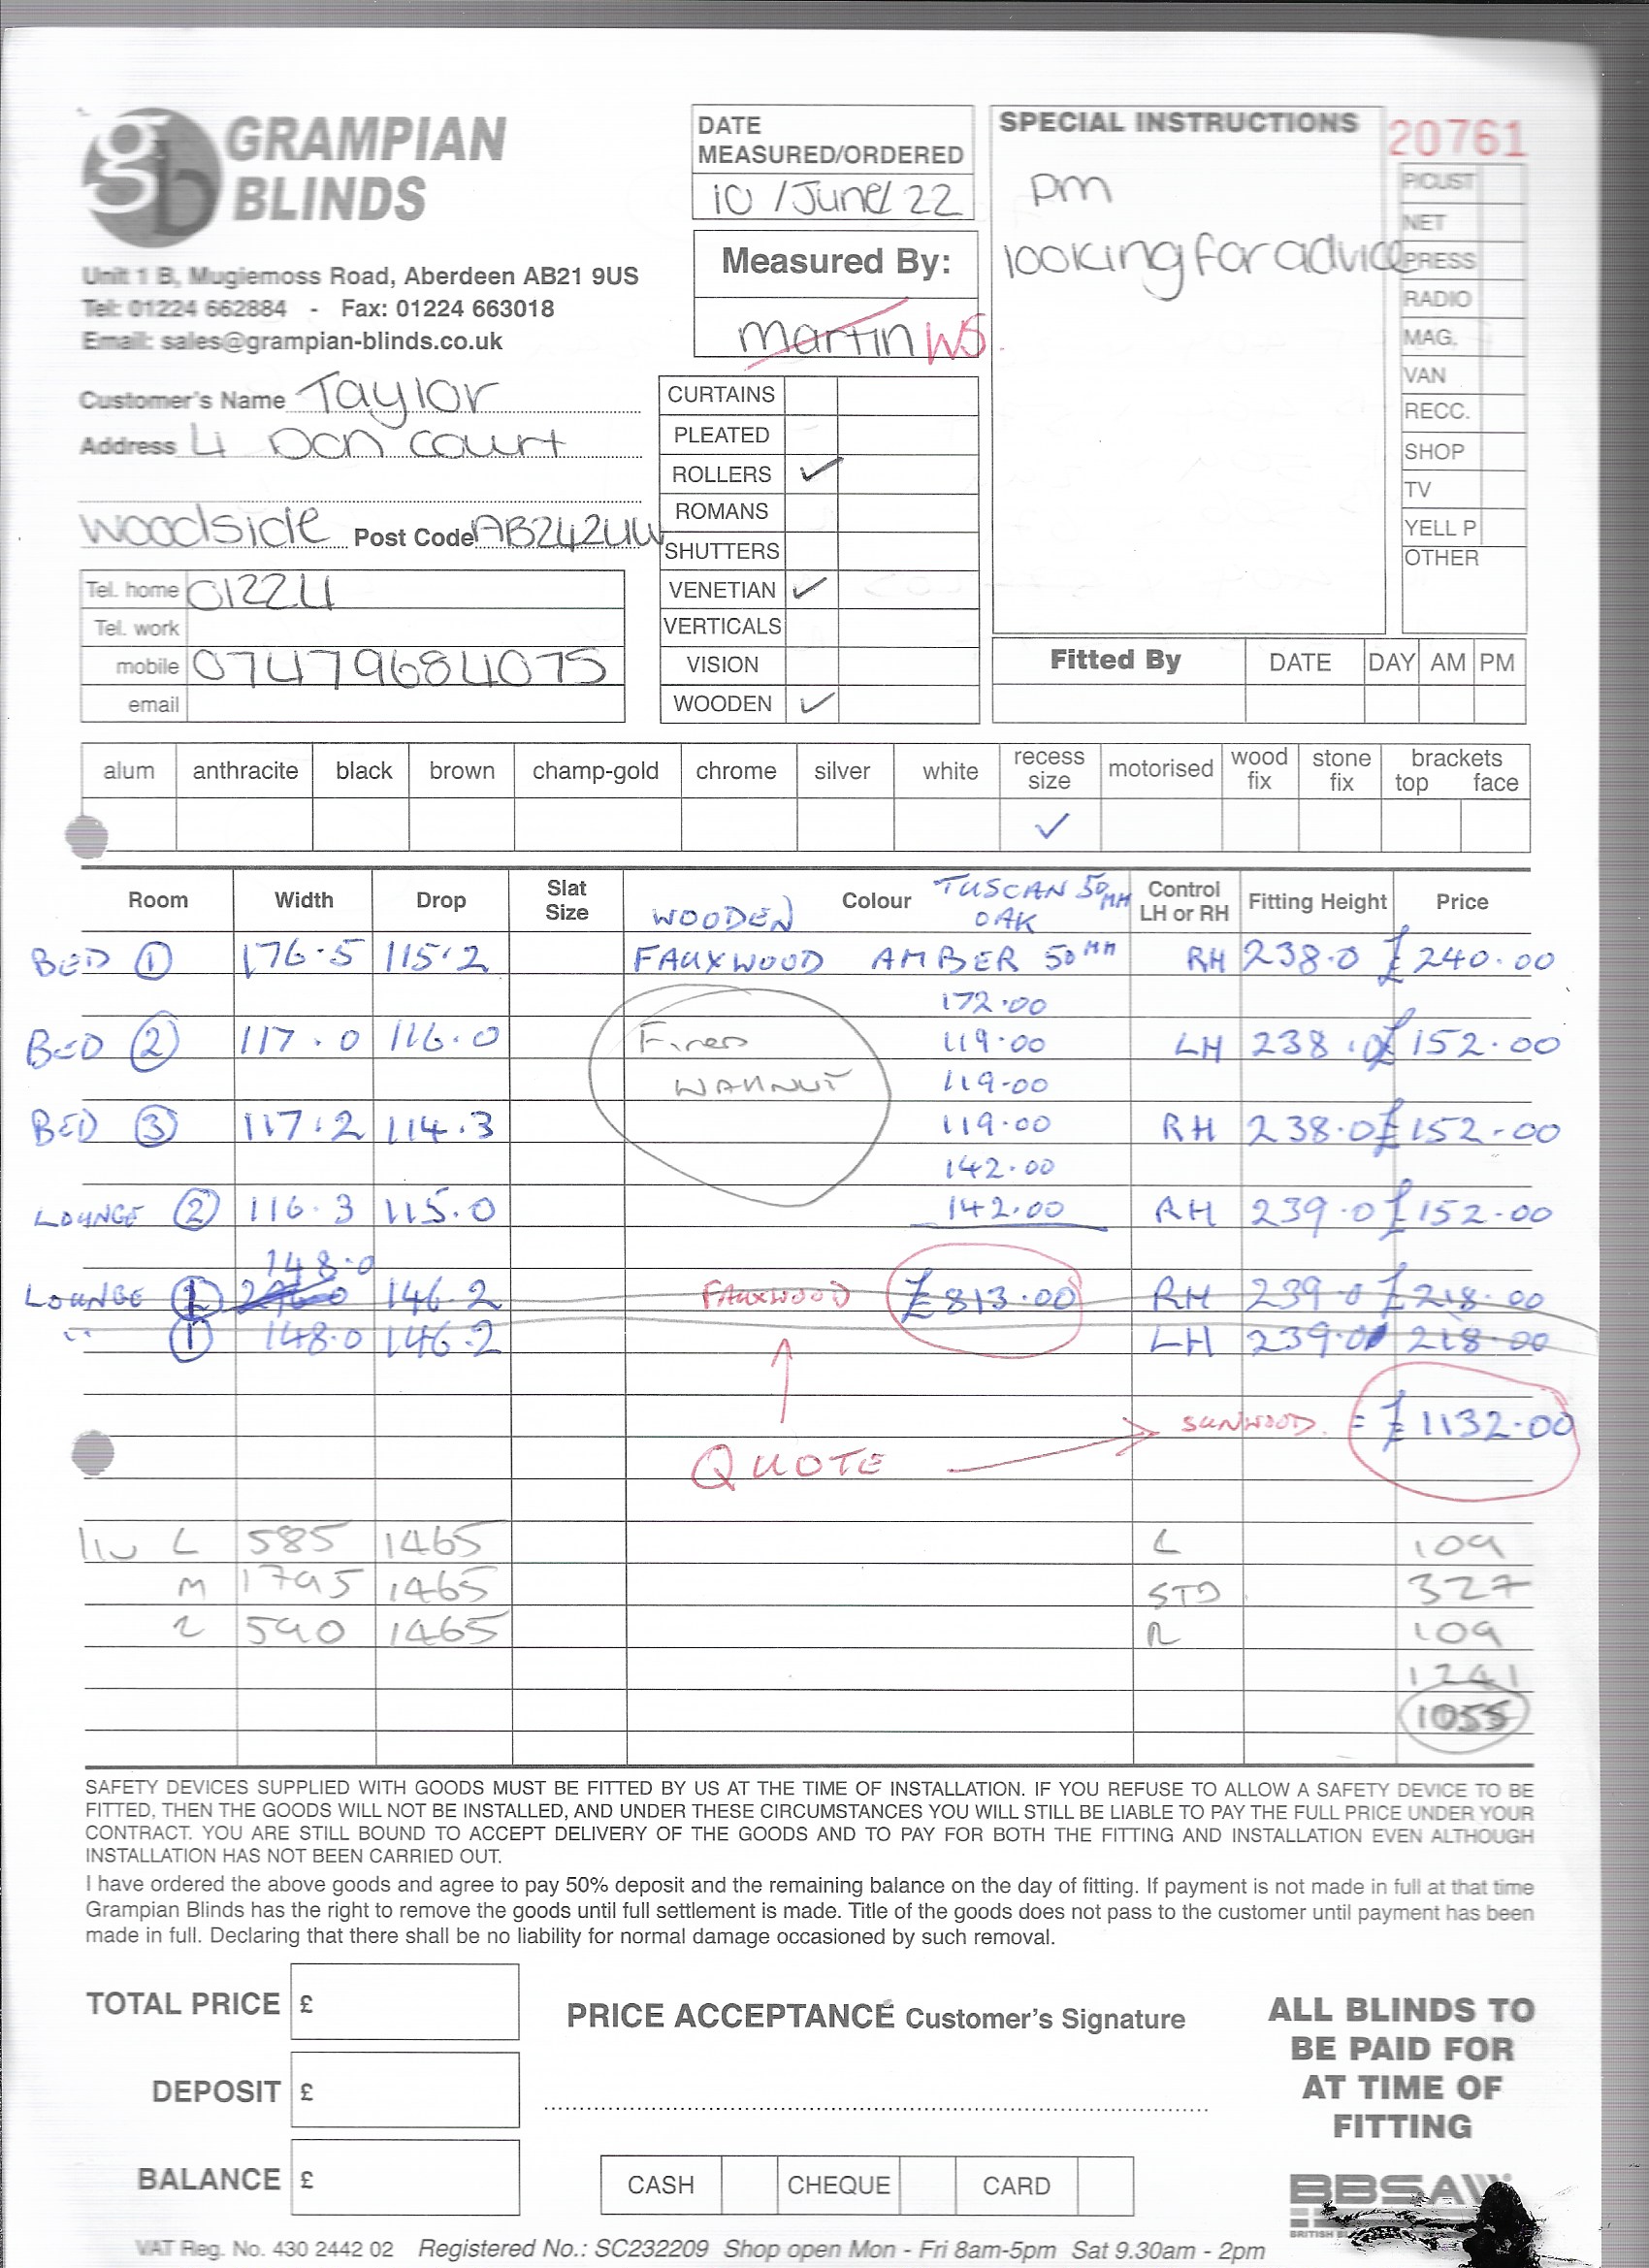 GRAMPIAN
BLINDS
Unit 1 B, Mugiemoss Road, Aberdeen AB21 9US
Tel: 01224 662884 - Fax: 01224 663018
Email: sales@grampian-blinds.co.uk
DATE
MEASURED/ORDERED
10 / June / 22
Measured By:
Martin WS.
SPECIAL INSTRUCTIONS
pm
looking for advice
20761
P/CUST
NET
PRESS
RADIO
MAG.
VAN
RECC.
SHOP
TV
YELL P
OTHER
Customer's Name Taylor
Address 4 Don Court
Woodside Post Code AB24 2UW
Tel. home 01224
Tel. work
mobile 07479684075
email
CURTAINS
PLEATED
ROLLERS ✓
ROMANS
SHUTTERS
VENETIAN ✓
VERTICALS
VISION
WOODEN ✓
Fitted By DATE DAY AM PM
alum anthracite black brown champ-gold chrome silver white recess size motorised wood fix stone fix brackets top face
✓
Room Width Drop Slat Size Colour Control LH or RH Fitting Height Price
WOODEN TUSCAN 50MM OAK
BED 1 176.5 115.2 FAUXWOOD AMBER 50MM RH 238.0 £240.00
172.00
BED 2 117.0 116.0 119.00 LH 238.0 £152.00
WALNUT 119.00
BED 3 117.2 114.3 119.00 RH 238.0 £152.00
142.00
LOUNGE 2 116.3 115.0 142.00 RH 239.0 £152.00
148.0
LOUNGE 1 146.2 FAUXWOOD £813.00 RH 239.0 £218.00
" 1 148.0 146.2 LH 239.0 218.00
SUNWOOD. = £1132.00
QUOTE
liv L 585 1465 L 109
M 1795 1465 STD 327
R 590 1465 R 109
1241
1055
SAFETY DEVICES SUPPLIED WITH GOODS MUST BE FITTED BY US AT THE TIME OF INSTALLATION. IF YOU REFUSE TO ALLOW A SAFETY DEVICE TO BE
FITTED, THEN THE GOODS WILL NOT BE INSTALLED, AND UNDER THESE CIRCUMSTANCES YOU WILL STILL BE LIABLE TO PAY THE FULL PRICE UNDER YOUR
CONTRACT. YOU ARE STILL BOUND TO ACCEPT DELIVERY OF THE GOODS AND TO PAY FOR BOTH THE FITTING AND INSTALLATION EVEN ALTHOUGH
INSTALLATION HAS NOT BEEN CARRIED OUT.
I have ordered the above goods and agree to pay 50% deposit and the remaining balance on the day of fitting. If payment is not made in full at that time
Grampian Blinds has the right to remove the goods until full settlement is made. Title of the goods does not pass to the customer until payment has been
made in full. Declaring that there shall be no liability for normal damage occasioned by such removal.
TOTAL PRICE £
PRICE ACCEPTANCE Customer's Signature
DEPOSIT £
BALANCE £
CASH CHEQUE CARD
ALL BLINDS TO
BE PAID FOR
AT TIME OF
FITTING
BBSA
VAT Reg. No. 430 2442 02 Registered No.: SC232209 Shop open Mon - Fri 8am-5pm Sat 9.30am - 2pm